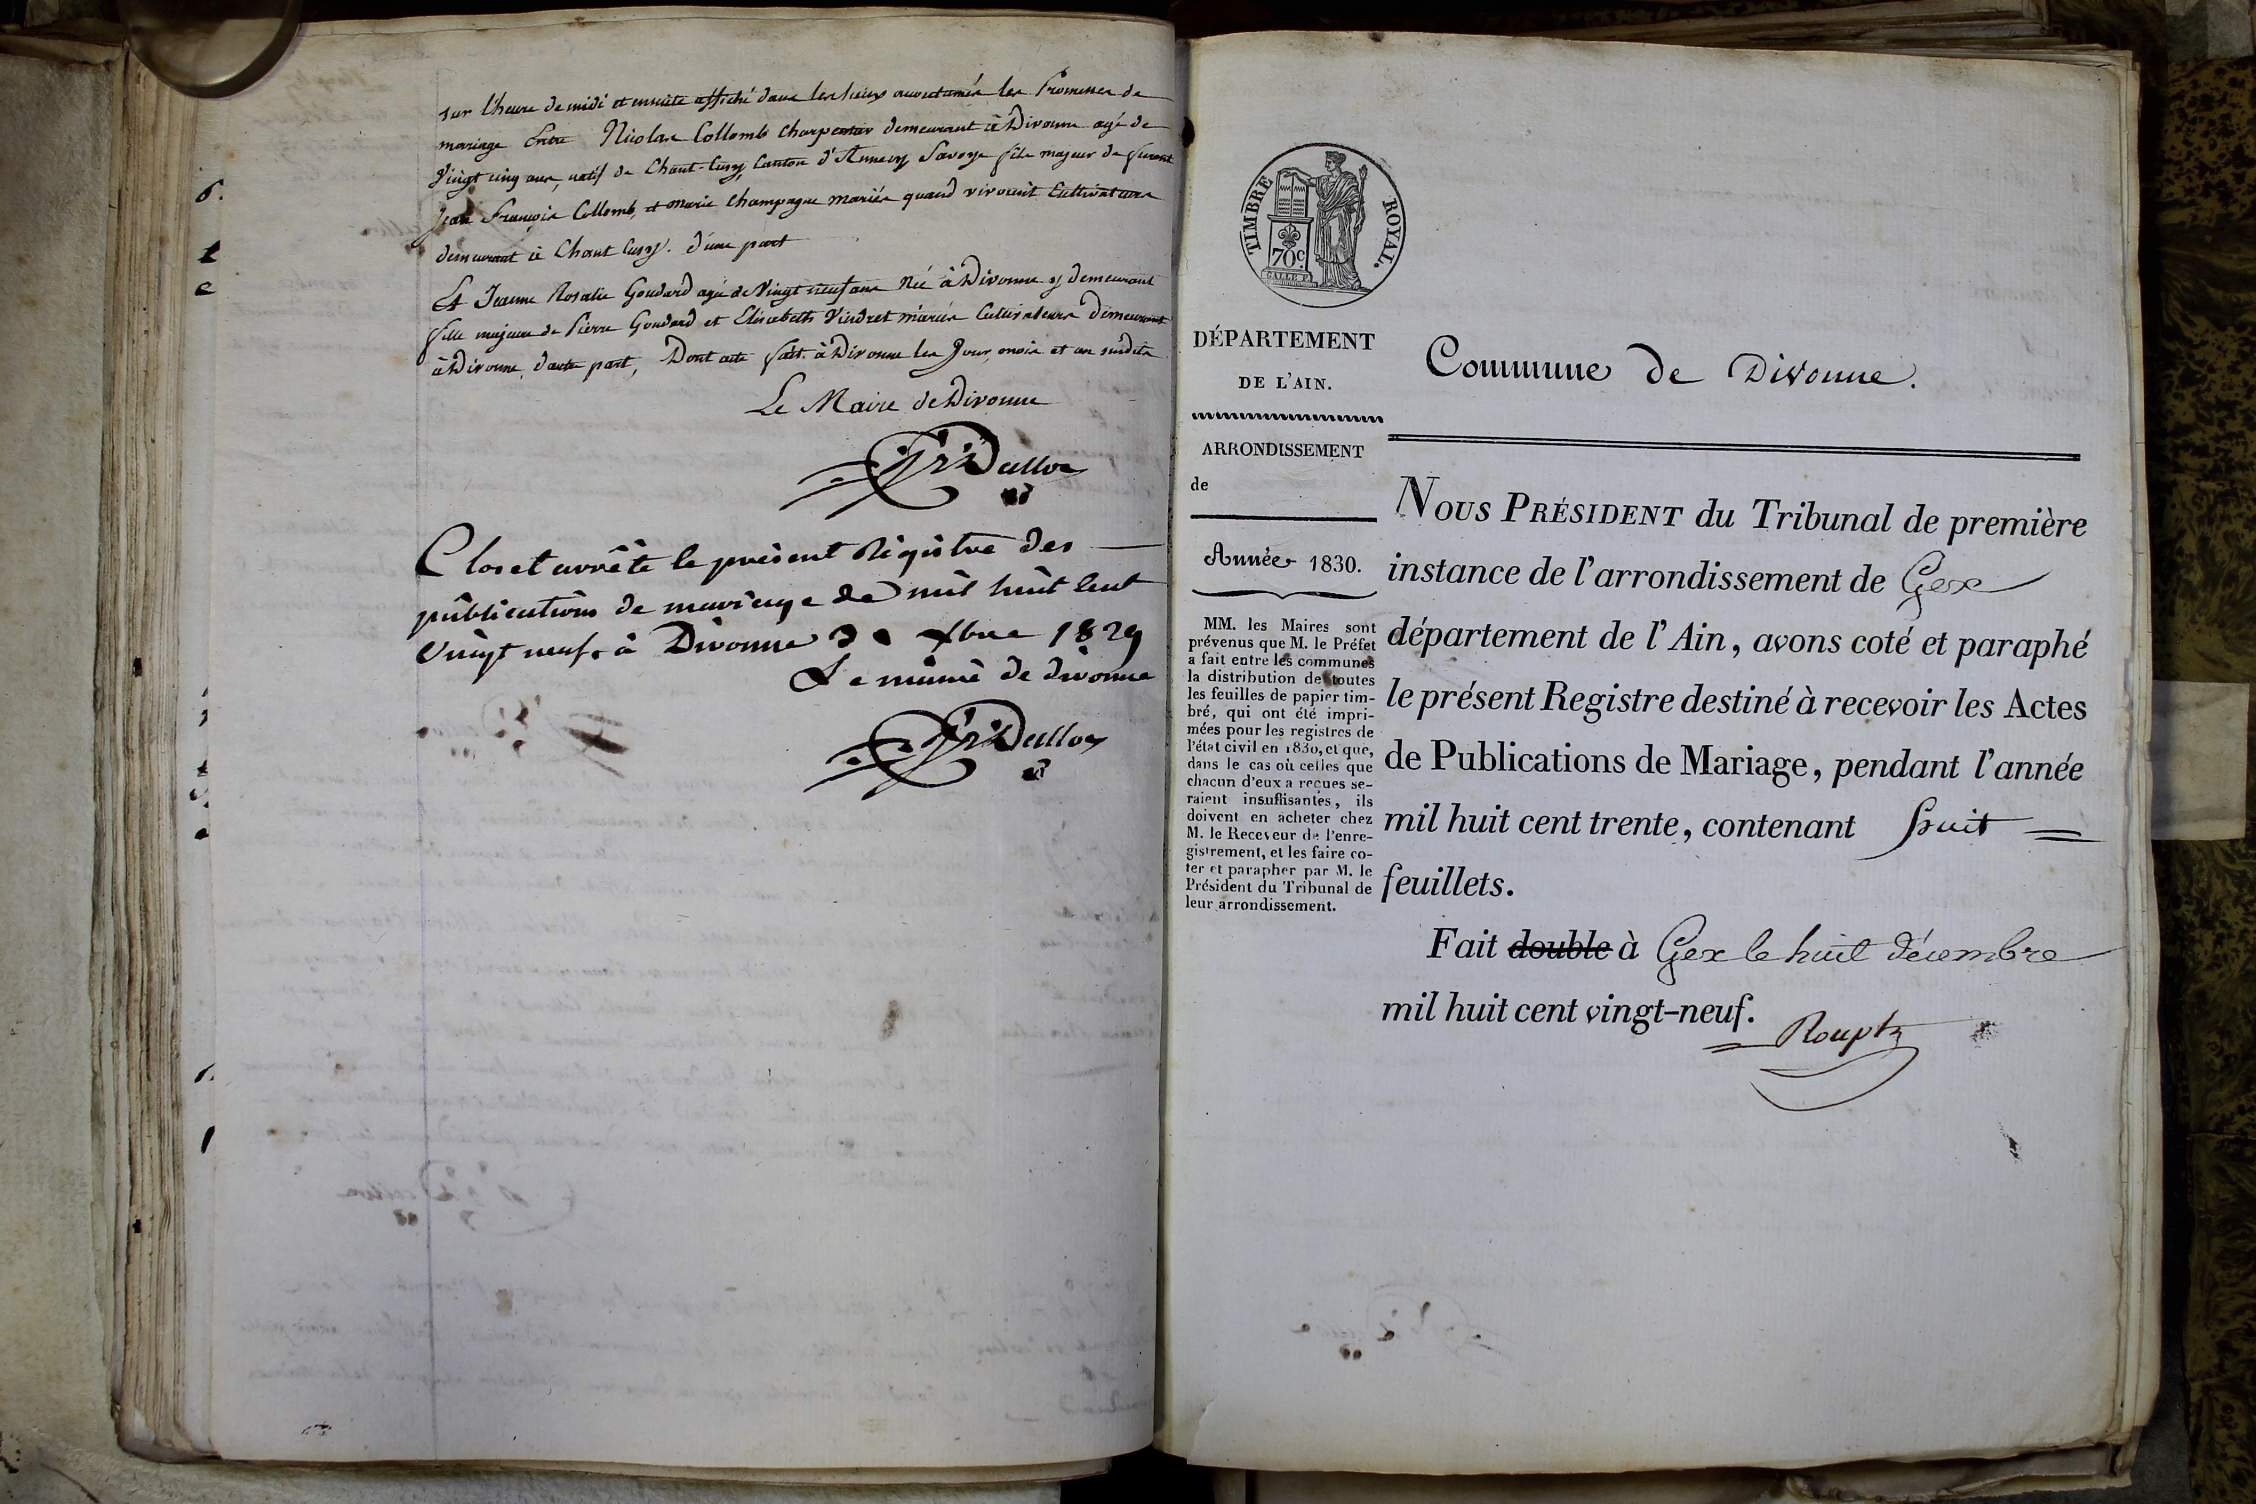 sur l'heure de midi et ensuite affiché dans les lieux accoutumés les Promesses de
mariage Entre Nicolas Collomb Charpentier demeurant à Divonne agé de
Vingt cinq ans, natif de Chant-Cusy Canton d'Annecy Savoye fils majeur de furent
Jean François Collomb, et marie Champagne mariés quand vivoient Cultivateurs
demeurant à Chant Cusy. d'une part
Et Jeanne Rosalie Goudard agée de Vingt neuf ans Née à Divonne y demeurant
fille majeure de Pierre Goudard et Elisabeth Vindret mariés Cultivateurs demeurant
à Divonne, d'autre part, Dont acte fait à Divonne les Jour, mois et an susdits
Le Maire de Divonne
Clos et arrêté le présent Régistre des
publications de mariage de mil huit Cent
Vingt neuf. à Divonne 3 Xbre 1829
Le maire de divonne
TIMBRE ROYAL.
70c
DÉPARTEMENT
DE L'AIN.
ARRONDISSEMENT
de
Année 1830.
MM. les Maires sont
prévenus que M. le Préfet
a fait entre les communes
la distribution de toutes
les feuilles de papier tim-
bré, qui ont été impri-
mées pour les registres de
l'état civil en 1830, et que,
dans le cas où celles que
chacun d'eux a reçues se-
raient insuffisantes, ils
doivent en acheter chez
M. le Receveur de l'enre-
gistrement, et les faire co-
ter et parapher par M. le
Président du Tribunal de
leur arrondissement.
Commune de Divonne.
NOUS PRÉSIDENT du Tribunal de première
instance de l'arrondissement de Gex
département de l'Ain, avons coté et paraphé
le présent Registre destiné à recevoir les Actes
de Publications de Mariage, pendant l'année
mil huit cent trente, contenant huit
feuillets.
Fait double à Gex le huit décembre
mil huit cent vingt-neuf.